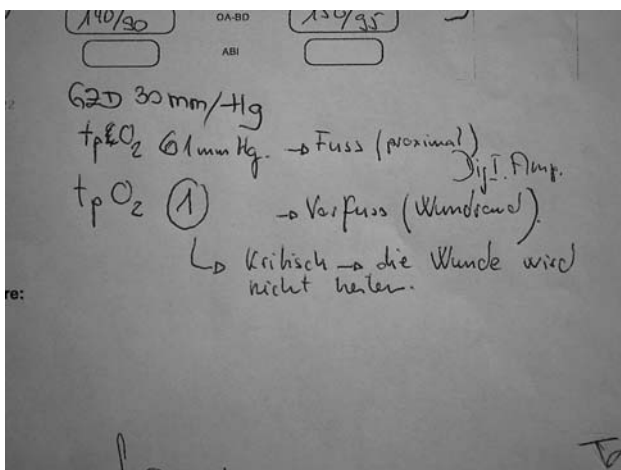 140/90 OA-BD 150/95
ABI
GZD 30 mm/Hg
tpO2 61mm Hg. → Fuss (proximal)
Dig I. Amp.
tpO2 1 → Vorfuss (Wundrand).
↳ Kritisch → die Wunde wird
nicht heilen.
re: